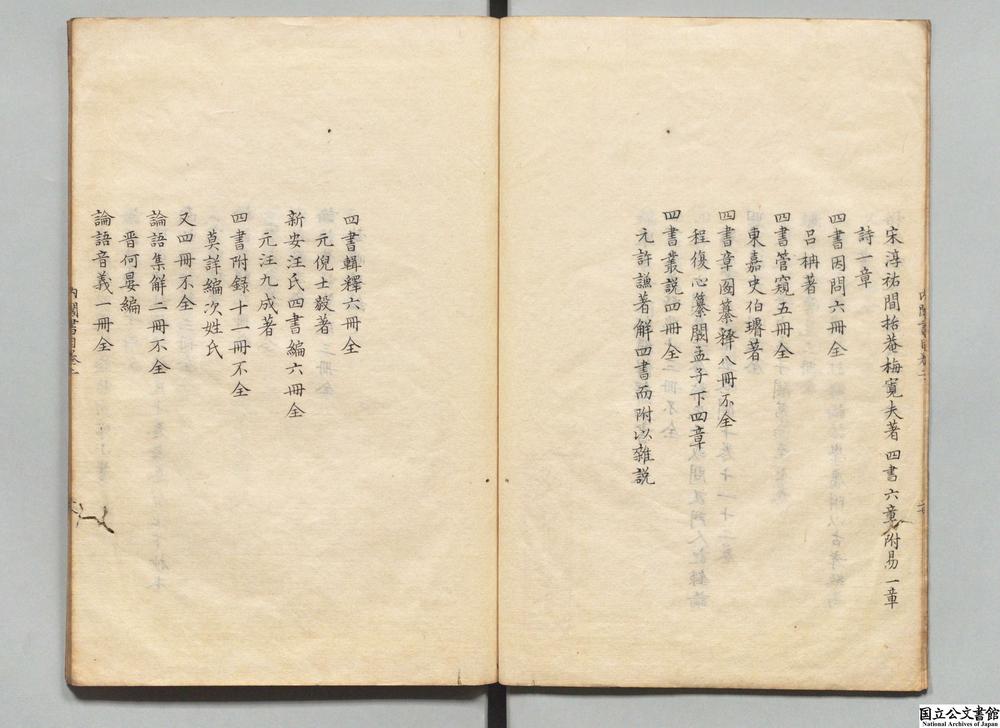 宋淳祐間拾菴梅寬夫著四書六章附易一章
詩一章
四書因問六冊全
呂柟著
四書管窺五冊全
東嘉史伯璿著
四書章圖纂釋八冊不全
程復心纂闕孟子下四章
四書叢説四冊全
元許謙著解四書而附以雜説
四書輯釋六冊全
元倪士毅著
新安汪氏四書編六冊全
元汪九成著
四書附録十一冊不全
莫詳編次姓氏
又四冊不全
論語集解二冊不全
晋何晏編
論語音義一冊全
国立公文書館
National Archives of Japan